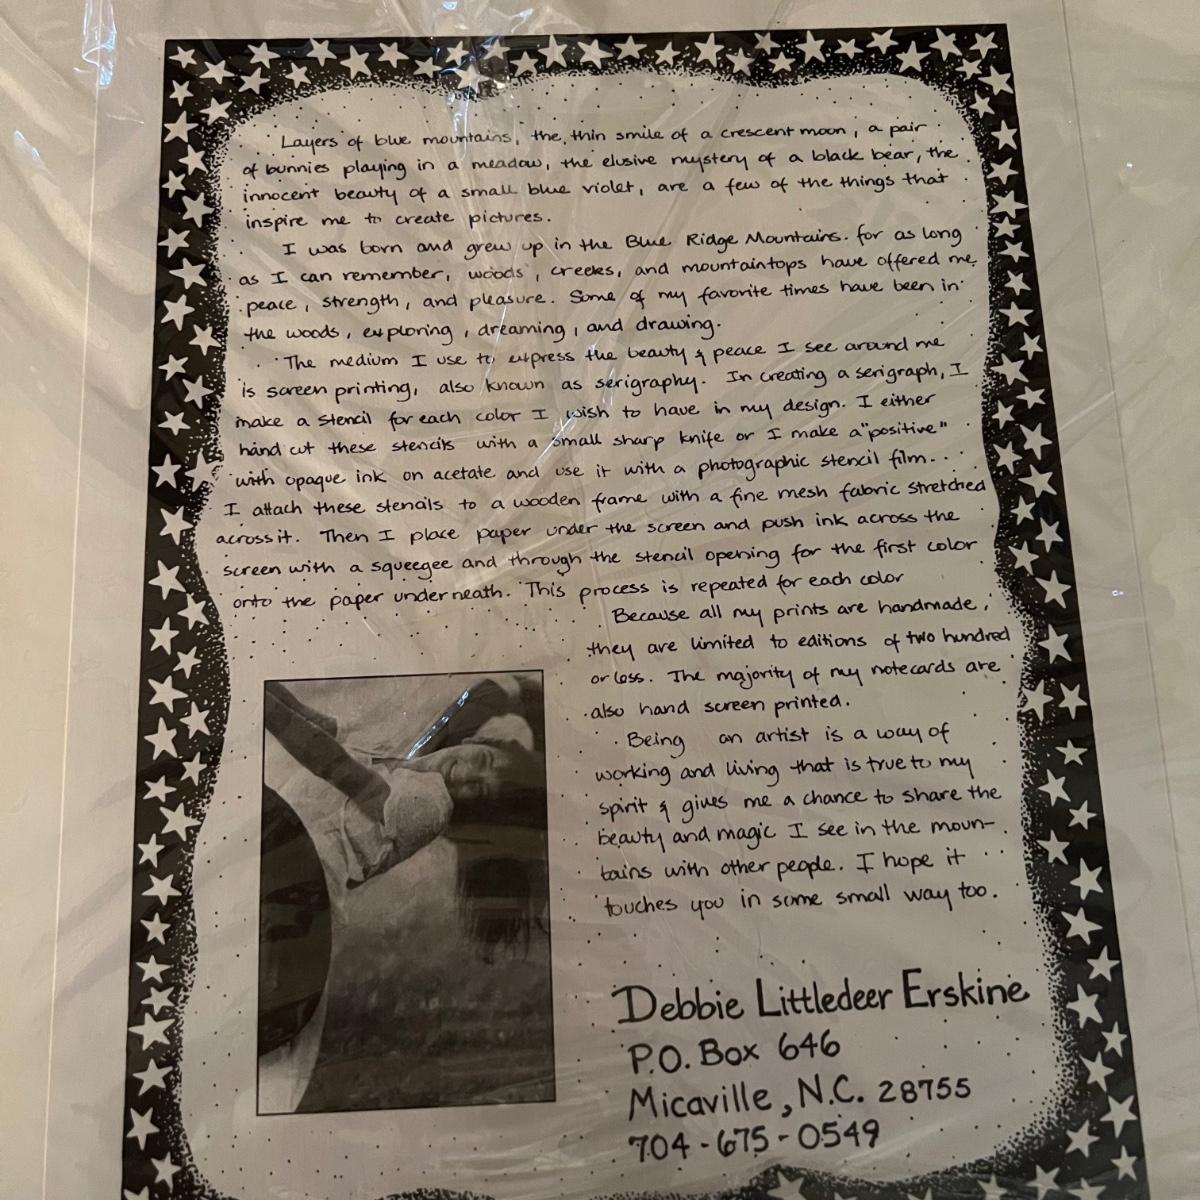 Layers of blue mountains, the thin smile of a crescent moon, a pair
of bunnies playing in a meadow, the elusive mystery of a black bear, the
innocent beauty of a small blue violet, are a few of the things that
inspire me to create pictures.
I was born and grew up in the Blue Ridge Mountains. for as long
as I can remember, woods, creeks, and mountaintops have offered me
peace, strength, and pleasure. Some of my favorite times have been in
the woods, exploring, dreaming, and drawing.
The medium I use to express the beauty & peace I see around me
is screen printing, also known as serigraphy. In creating a serigraph, I
make a stencil for each color I wish to have in my design. I either
hand cut these stencils with a small sharp knife or I make a "positive"
with opaque ink on acetate and use it with a photographic stencil film...
I attach these stencils to a wooden frame with a fine mesh fabric stretched
across it. Then I place paper under the screen and push ink across the
screen with a squeegee and through the stencil opening for the first color
onto the paper underneath. This process is repeated for each color
Because all my prints are handmade,
they are limited to editions of two hundred
or less. The majority of my notecards are
also hand screen printed.
Being an artist is a way of
working and living that is true to my
spirit & gives me a chance to share the
beauty and magic I see in the moun-
tains with other people. I hope it
touches you in some small way too.
Debbie Littledeer Erskine
P.O. Box 646
Micaville, N.C. 28755
704-675-0549